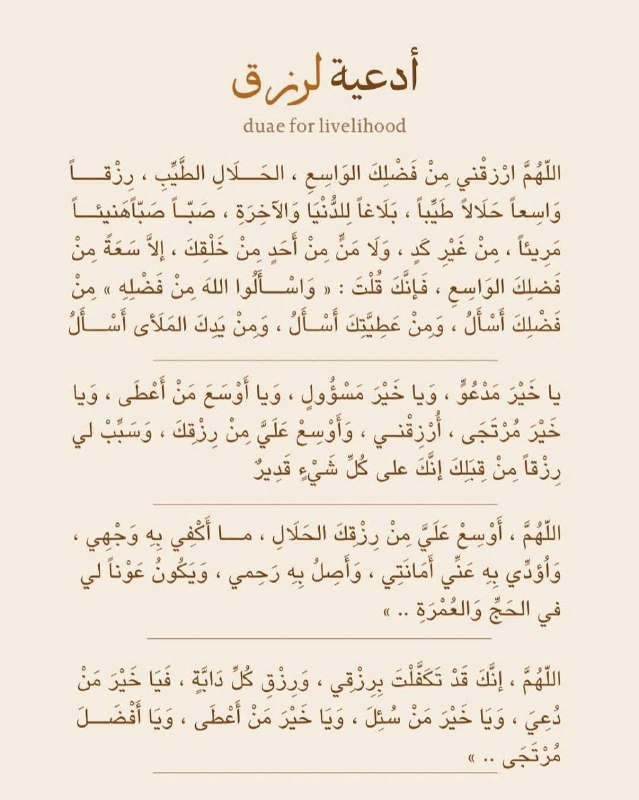 أدعية لرزق
duae for livelihood
اللّهُمَّ ارْزقْني مِنْ فَضْلِكَ الوَاسِعِ ، الحَـــلَالِ الطَّيِّبِ ، رِزْقـــــاً
وَاسِعاً حَلَالاً طَيِّباً ، بَلَاغاً لِلدُّنْيَا وَالآخِرَةِ ، صَبّــاً صَبّاًهَنيئــاً
مَريئاً ، مِنْ غَيْرِ كَدٍ ، وَلَا مَنٍّ مِنْ أَحَدٍ مِنْ خَلْقِكَ ، إلاَّ سَعَةً مِنْ
فَضلِكَ الوَاسِعِ ، فَإنَّكَ قُلْتَ : « وَاسْـــأَلُوا اللهَ مِنْ فَضْلِهِ » مِنْ
فَضْلِكَ أَسْأَلُ ، وَمِنْ عَطِيَّتِكَ أسْــأَلُ ، وَمِنْ يَدِكَ المَلَأى أَسْــأَلُ
يا خَيْرَ مَدْعُوٍّ ، وَيا خَيْرَ مَسْؤُولٍ ، وَيا أَوْسَعَ مَنْ أَعْطَى ، وَيا
خَيْرَ مُرْتَجَى ، أُرْزِقْنــي ، وَأَوْسِعْ عَلَيَّ مِنْ رِزْقِكَ ، وَسَبِّبْ لي
رِزْقاً مِنْ قِبَلِكَ إنَّكَ على كُلِّ شَيْءٍ قَدِيرٌ
اللّهُمَّ ، أَوْسِعْ عَلَيَّ مِنْ رِزِقِكَ الحَلَالِ ، مـــا أَكْفِي بِهِ وَجْهِي ،
وَاُؤدِّي بِهِ عَنِّي أَمَانَتِي ، وَأَصِلُ بِه رَحِمي ، وَيَكُونُ عَوْناً لي
في الحَجِّ وَالعُمْرَةِ .. »
اللّهُمَّ ، إنَّكَ قَدْ تَكَفَّلْتَ بِرِزْقِي ، وَرِزْقِ كُلِّ دَابَّةٍ ، فَيَا خَيْرَ مَنْ
دُعِيَ ، وَيَا خَيْرَ مَنْ سُئِلَ ، وَيَا خَيْرَ مَنْ أَعْطَى ، وَيَا أَفْضَـــلَ
مُرْتَجَى .. »